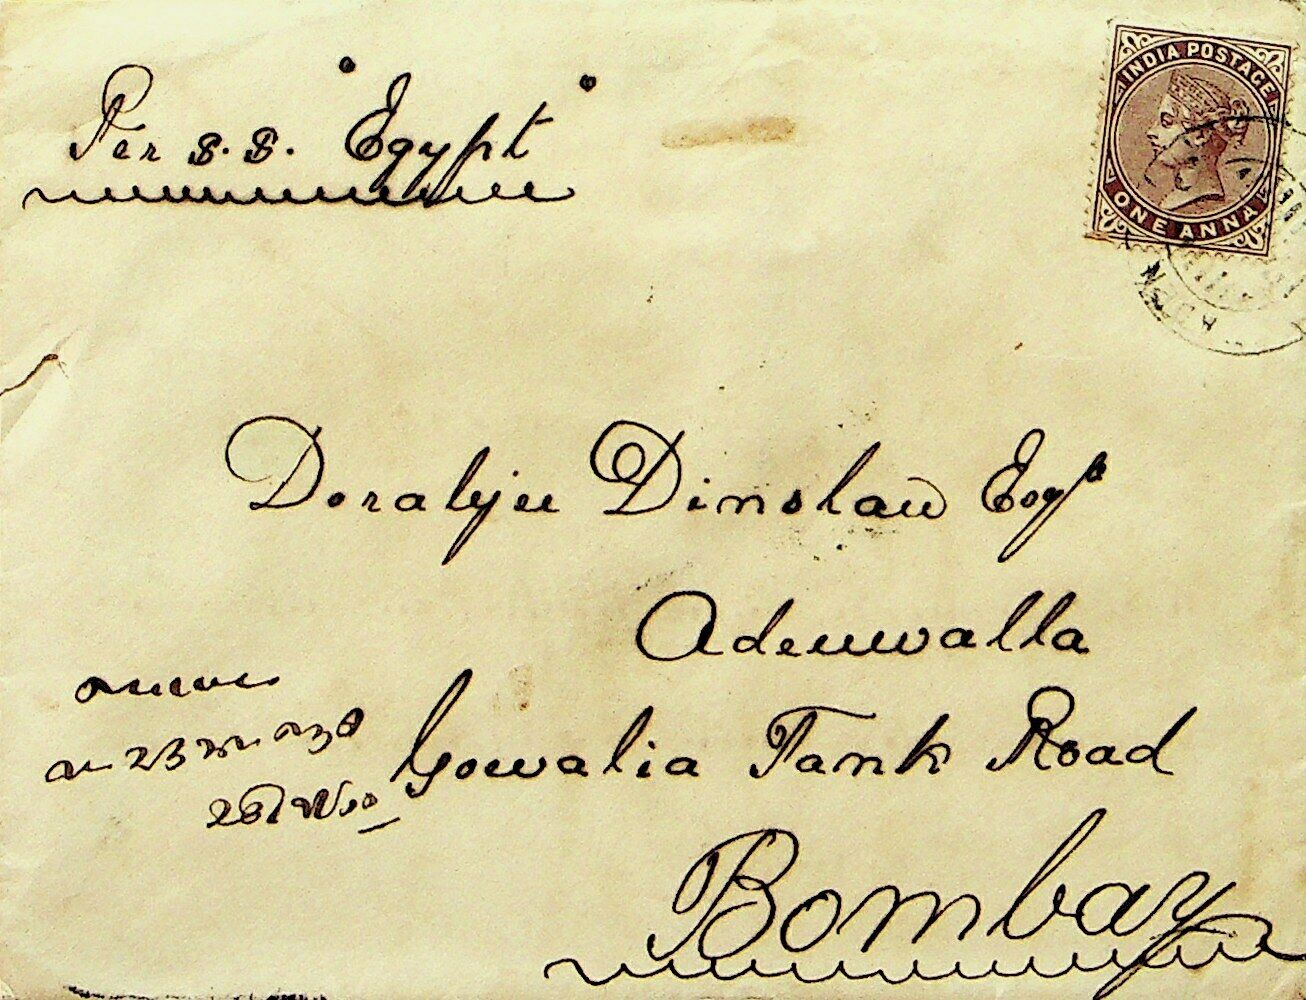 Per S.S. "Egypt"
INDIA POSTAGE
ONE ANNA
ADEN
Dorabjee Dinshaw Esqr
Adenwalla
Gowalia Tank Road
Bombay